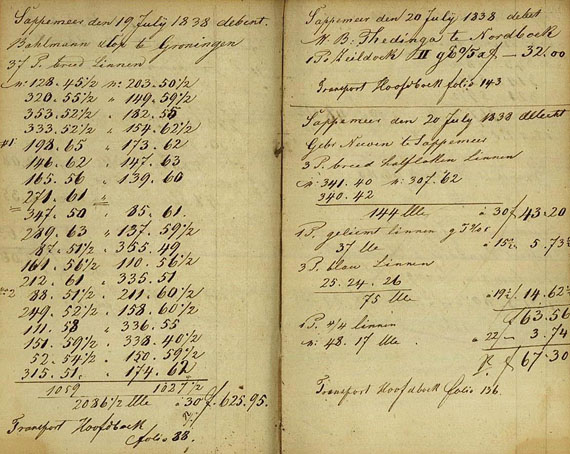 Sappemeer den 19 July 1838 debent.
Bahlmann & Cop te Groningen
37 P. breed Linnen
n: 128. 45 1/2 n: 203. 50 1/2
320. 55 1/2 " 149. 59 1/2
353. 52 1/2 " 182. 55
333. 52 1/2 " 154. 62 1/2
198. 65 " 173. 62
146. 62 " 147. 63
165. 56 " 139. 60
271. 61 "
347. 50 85. 61.
289. 63 " 137. 59 1/2
87. 51 1/2 " 355. 49
161. 56 1/2 110. 56 1/2
212. 61 " 335. 51
88. 51 1/2 " 211. 60 1/2
249. 52 1/2 " 158. 60 1/2
111. 58 " 336. 55
151. 59 1/2 " 338. 40 1/2
52. 54 1/2 " 150. 59 1/2
315. 51. " 174. 62
1059 1027 1/2
2086 1/2 Elle a 30 f. 625.95.
Transport Hoofdboek
folio 88.
Sappemeer den 20 July 1838 debet
H. B. Thedinga te Nordboek
1 P. Heildoek III f. — 32.00
Transport Hoofdboek folio 143
Sappemeer den 20 July 1838 debent
Gebr Neeven te Sappemeer
3 P. breed Halflaken Linnen
n: 341. 40 n: 307. 62
340. 42
144 Elle a 30 f 43.20
1 P. geliemt linnen
37 Elle a 15 1/2 5.73 1/2
3 P. blau Linnen
25. 24. 26
75 Elle a 19 1/2 f 14.62 1/2
f 63.56
1 P. 4/4 linnen
n: 48. 17 Elle a 22 f 3.74
f 67.30
Transport Hoofdboek folio 136.